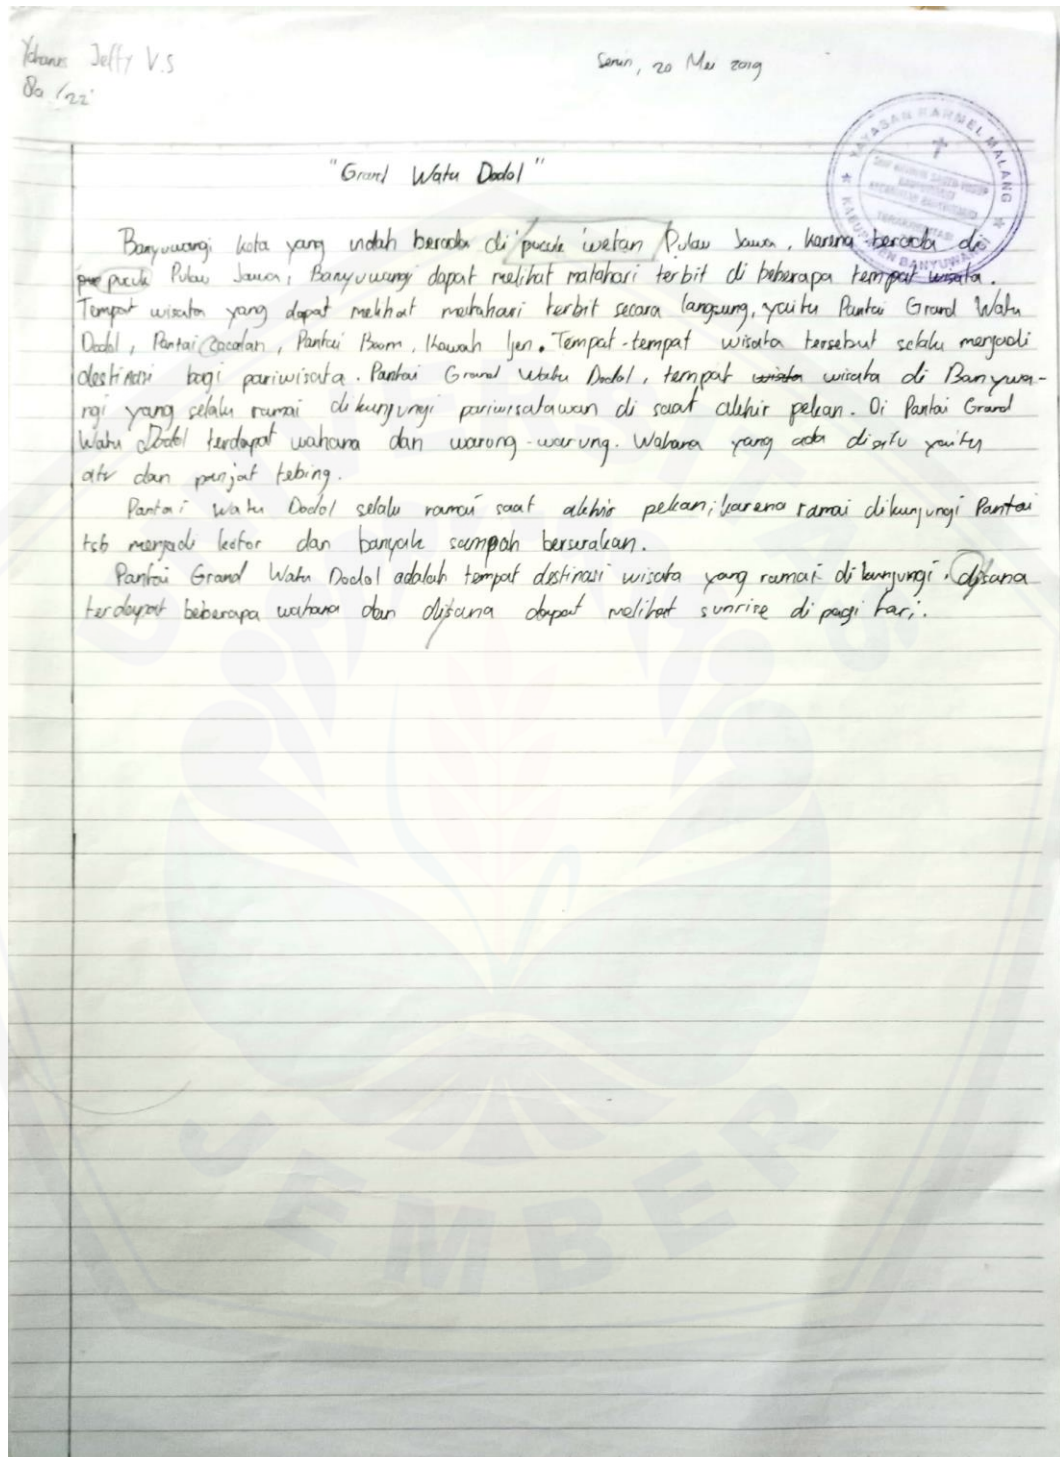 Yohanes Jeffy V.S
Senin, 20 Mei 2019
8a /22
YAYASAN KARMEL MALANG
KABUPATEN BANYUWANGI
"Grand Watu Dodol"
Banyuwangi kota yang indah berada di pucuk wetan Pulau Jawa, karena berada di
pucuk Pulau Jawa, Banyuwangi dapat melihat matahari terbit di beberapa tempat wisata.
Tempat wisata yang dapat melihat matahari terbit secara langsung, yaitu Pantai Grand Watu
Dodol, Pantai Cacalan, Pantai Boom, Kawah Ijen. Tempat-tempat wisata tersebut selalu menjadi
destinasi bagi pariwisata. Pantai Grand Watu Dodol, tempat wisata wisata di Banyuwa-
ngi yang selalu ramai dikunjungi pariwisatawan di saat akhir pekan. Di Pantai Grand
Watu Dodol terdapat wahana dan warung-warung. Wahana yang ada disitu yaitu
atv dan panjat tebing.
Pantai Watu Dodol selalu ramai saat akhir pekan, karena ramai dikunjungi Pantai
tsb menjadi kotor dan banyak sampah berserakan.
Pantai Grand Watu Dodol adalah tempat destinasi wisata yang ramai dikunjungi. disana
terdapat beberapa wahana dan disana dapat melihat sunrise di pagi hari.
JEMBER